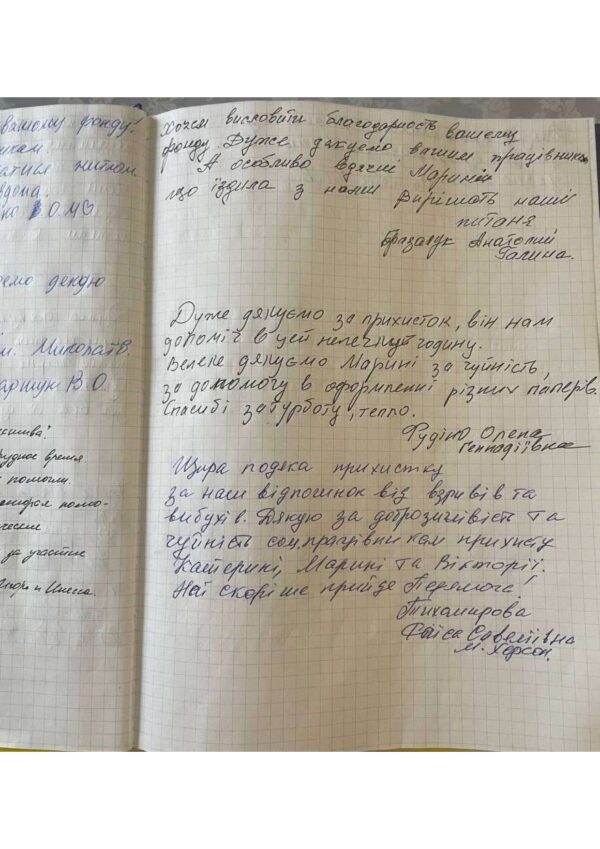 вашому фонду!
О.М
декую
м. Миколаїв.
В.О.
время
помогли.
за участие
и Инесса.
Хочем висловити благодарность вашому
фонду. Дуже дякуемо вашим працівникам
А особливо вдячні Марині
що їздила з нами вирішать наші
питаня
Анатолий
Галина.
Дуже дякуємо за прихисток, він нам
допоміг в цей нелегкую годину.
Велеке дякуємо Марині за чуйність,
за допомогу в оформленні різних паперів.
Спасибі за турботу, тепло.
Олена
Геннадіївна
Щира подека прихистку
за наш відпочинок від взривів та
вибухів. Дякую за доброзичлівість та
чуйність соц.працівникам прихисту
Катерині, Марині та Вікторії.
Най скоріше прийде Перемога!
Тихомирова
Раїса Савеліївна
м. Херсон.